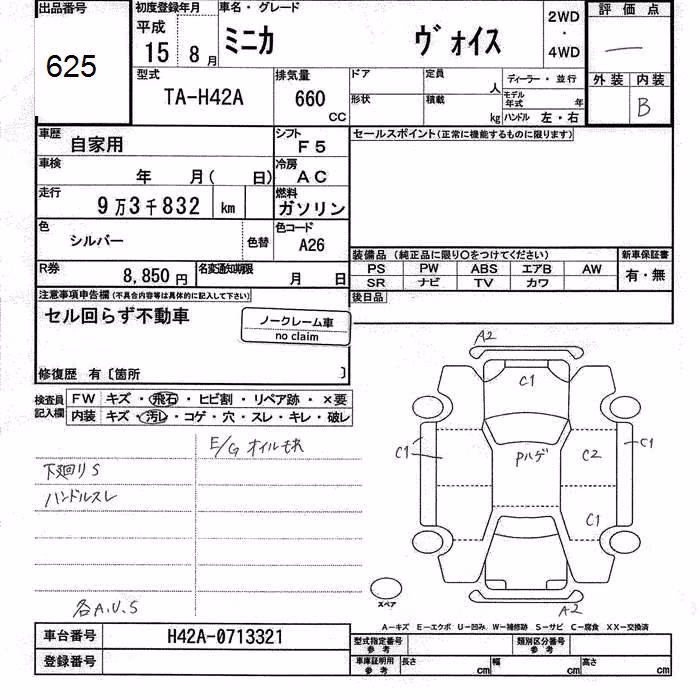 出品番号 初度登録年月 車名・グレード 2WD ・ 4WD 評価点
625 平成 15 8月 ミニカ ヴォイス —
型式 排気量 ドア 定員 人 ディーラー・並行 外装 内装
TA-H42A 660 CC 形状 積載 kg モデル年式 年 ハンドル 左・右 B
車歴 自家用 シフト F5 セールスポイント(正常に機能するものに限ります)
車検 年 月( 日) 冷房 AC
走行 9万3千832 km 燃料 ガソリン
色 シルバー 色替 色コード A26
装備品 (純正品に限り○をつけてください) 新車保証書
PS PW ABS エアB AW 有・無
SR ナビ TV カワ
R券 8,850円 名変通知期限 月 日
後日品
注意事項申告欄(不具合内容等は具体的に記入して下さい)
セル回らず不動車
ノークレーム車
no claim
修復歴 有〔箇所 〕
検査員記入欄 FW キズ・飛石・ヒビ割・リペア跡・×要
内装 キズ・汚レ・コゲ・穴・スレ・キレ・破レ
E/G オイルモレ
下廻りS
ハンドルスレ
各A.U.S
A2
C1
C1 Pハゲ C2 C1
C1
スペア A2
A-キズ E-エクボ U-凹み W-補修跡 S-サビ C-腐食 XX-交換済
車台番号 H42A-0713321 型式指定番号 参考 類別区分番号 参考
登録番号 車庫証明用 参考 長さ cm 幅 cm 高さ cm